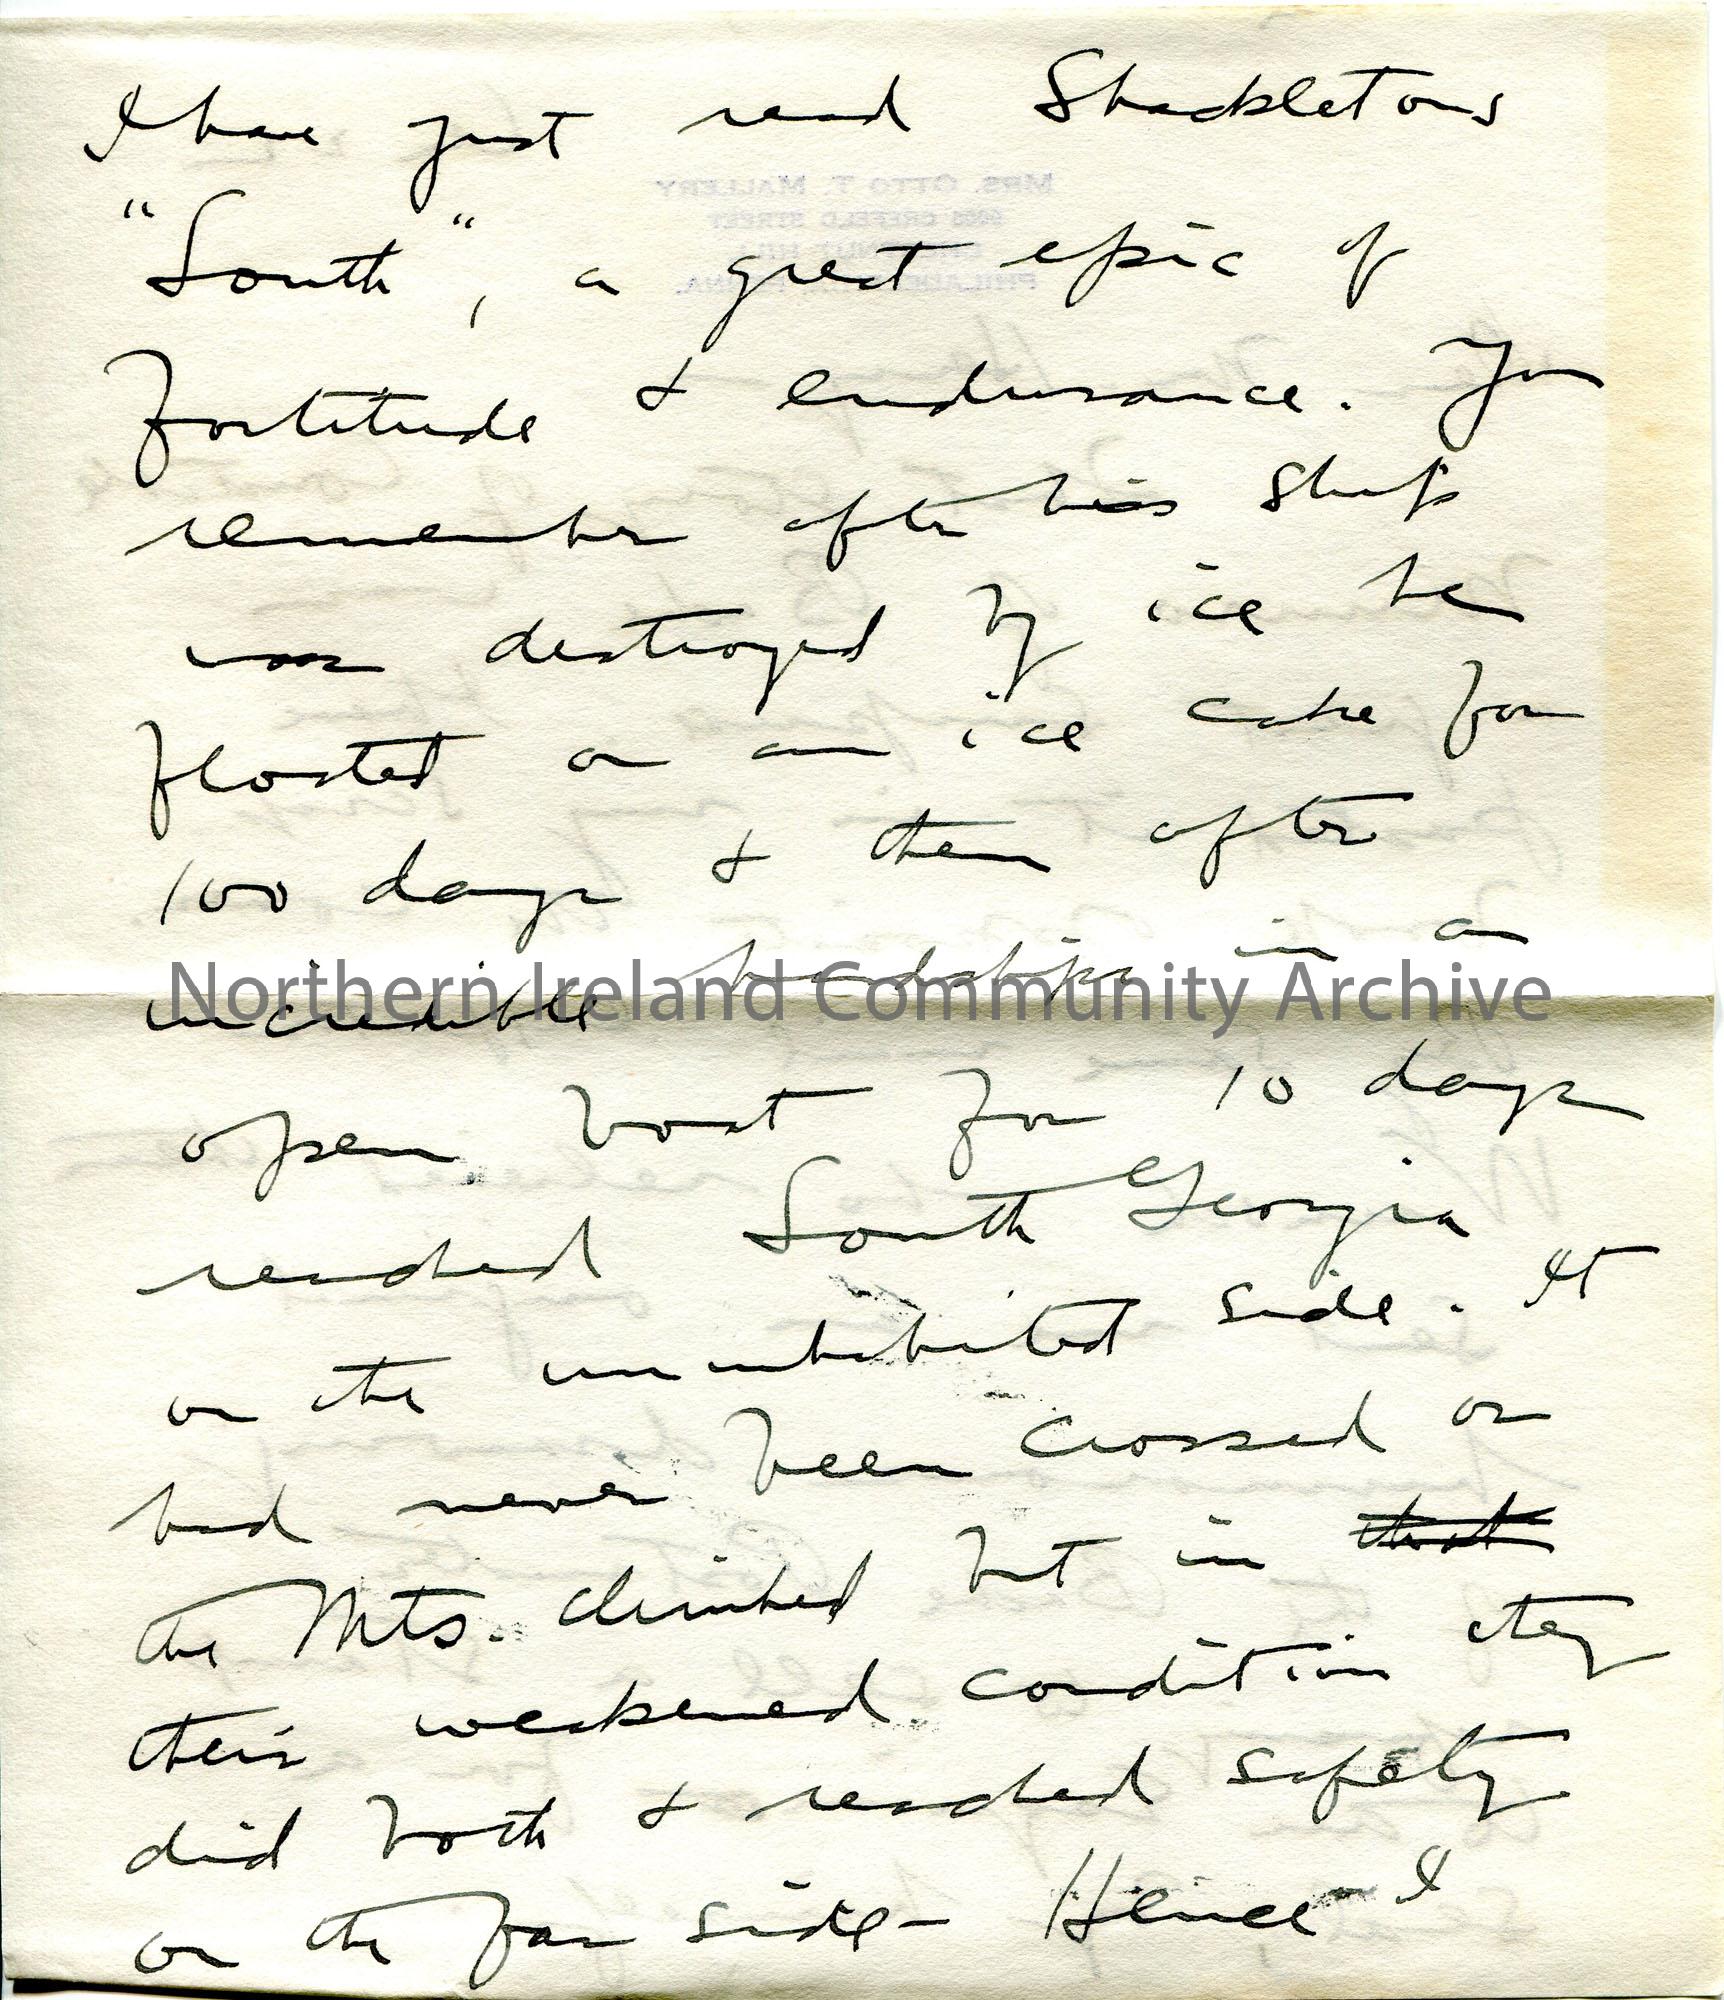 I have just read Shackletons
"South", a great epic of
fortitude & endurance. You
remember after his ship
was destroyed by ice he
floated on an ice cake for
100 days & then after
incredible hardships in an
open boat for 10 days
reached South Georgia
on the uninhabited side. It
had never been crossed or
the Mts. climbed but in that
their weakened condition they
did both & reached safety
on the far side - Hence I
Northern Ireland Community Archive
MRS. OTTO T. MALLERY